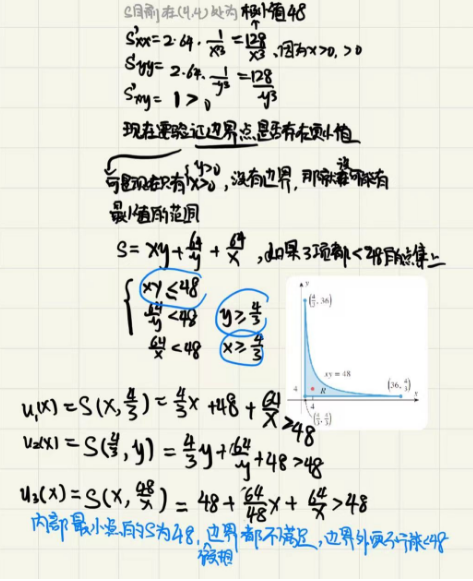 S目前在(4,4)处为极小值48
S''xx=2·64·1/x³=128/x³,因为x>0,>0
S''yy=2·64·1/y³=128/y³
S''xy=1>0
现在要验证边界点是否有右更小值
可是现在只有{y>0 x>0,没有边界,那就设可能有
最小值的范围
S=xy+64/y+64/x,如果3项都<48的点集上
{xy≤48
64/y<48 y≥4/3
64/x<48 x≥4/3
y
(4/3, 36)
xy = 48
(36, 4/3)
4 R x
4
(4/3, 4/3)
u₁(x)=S(x,4/3)=4/3x+48+64/x>48
u₂(x)=S(4/3,y)=4/3y+64/y+48>48
u₃(x)=S(x,48/x)=48+64/48x+64/x>48
内部最小点的S为48,边界都不满足,边界外更不可能<48